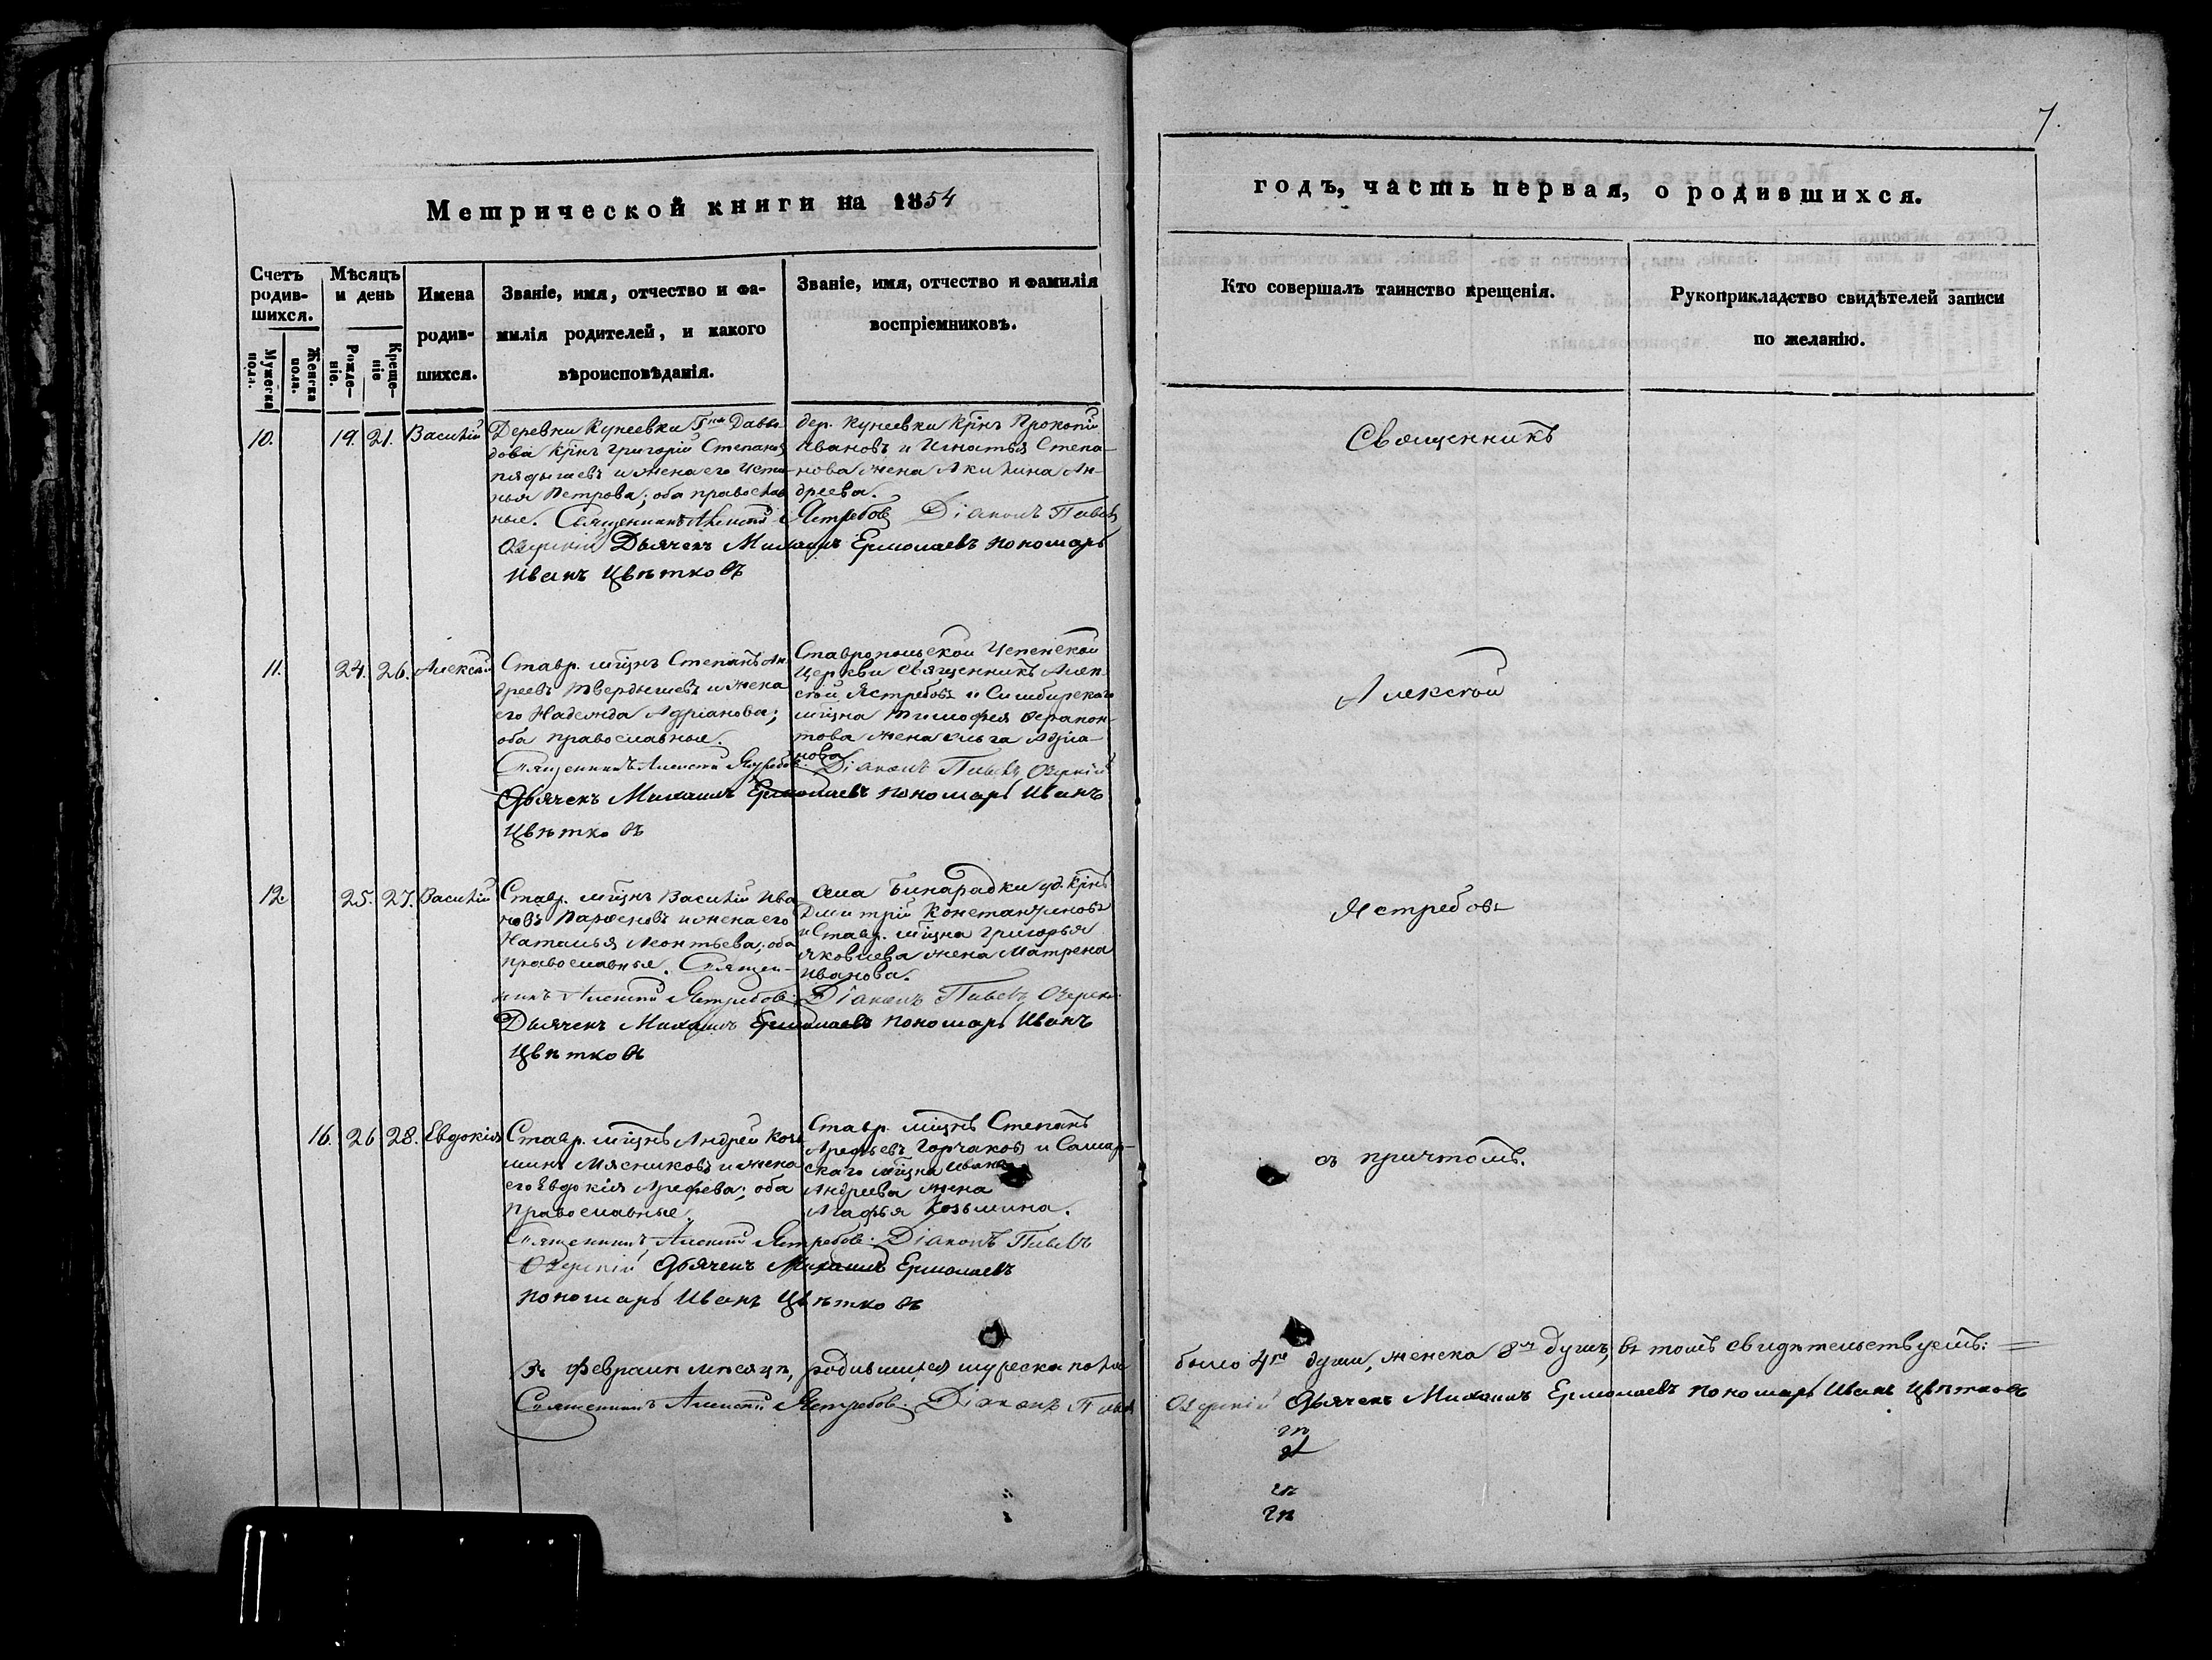 7.
Метрической книги на 1854
годъ, часть первая, о родившихся.
Счетъ родившихся.
Мужеска пола.
Женска пола.
Мѣсяцъ и день
Рожденіе.
Крещеніе
Имена родившихся.
Званіе, имя, отчество и фамилія родителей, и какого вѣроисповѣданія.
Званіе, имя, отчество и фамилія воспріемниковъ.
Кто совершалъ таинство крещенія.
Рукоприкладство свидѣтелей записи по желанію.
10. 19. 21. Василій
Деревни Кунеевки Гна Давы-
дова Крнъ Григорій Степановъ
и жена его Усти-
нья Петрова; оба православ
ные. Священникъ Алексѣй Ястребовъ Діаконъ Павелъ
Озерскій Дьячекъ Михаилъ Ермолаевъ пономарь
Иванъ Цвѣтковъ
дер. Кунеевки Крнъ Прокопій
Ивановъ и Игнатья Степа-
нова жена Акилина Ан-
дреева.
Священникъ
11. 24. 26. Алексѣй
Ставр. мѣщнъ Степанъ Ан-
дреевъ Твердышевъ и жена
его Надежда Адріанова;
оба православные.
Священникъ Алексѣй Ястребовъ. Діаконъ Павелъ Озерскій
Дьячекъ Михаилъ Ермолаевъ пономарь Иванъ
Цвѣтковъ
Ставропольской Успенской
Церкви священникъ Алек-
сѣй Ястребовъ и Симбирскаго
мѣщна Тимофея Ферапон-
това жена Ольга Адріа-
нова
Алексѣй
12. 25. 27. Василій
Ставр. мѣщнъ Василій Ива
новъ Парфеновъ и жена его
Наталья Леонтьева; оба
православные. Священ-
никъ Алексѣй Ястребовъ. Діаконъ Павелъ Озерскі:
Дьячекъ Михаилъ Ермолаевъ пономарь Иванъ
Цвѣтковъ
села Бинарадки уд. крнъ
Дмитрій Константиновъ
и Ставр. мѣщна Григорья
Яковлева жена Матрена
Иванова.
Ястребовъ
16. 26 28. Евдокія
Ставр. мѣщнъ Андрей Козь
минъ Мясниковъ и жена
его Евдокія Арефева; оба
православные.
Священникъ Алексѣй Ястребовъ. Діаконъ Павелъ
Озерскій Дьячекъ Михаилъ Ермолаевъ
пономарь Иванъ Цвѣтковъ
Ставр. мѣщнъ Степанъ
Арефьевъ Горчаковъ и Самар-
скаго мѣщна Ивана
Андреева жена
Агафья Козьмина.
съ причтомъ.
Въ Февралѣ мѣсяцѣ, родившихся мужеска пола было 4ре души, женска 8мь душъ, въ томъ свидѣтельствуемъ:
Священникъ Алексѣй Ястребовъ. Діаконъ Павелъ Озерскій Дьячекъ Михаилъ Ермолаевъ пономарь Иванъ Цвѣтковъ